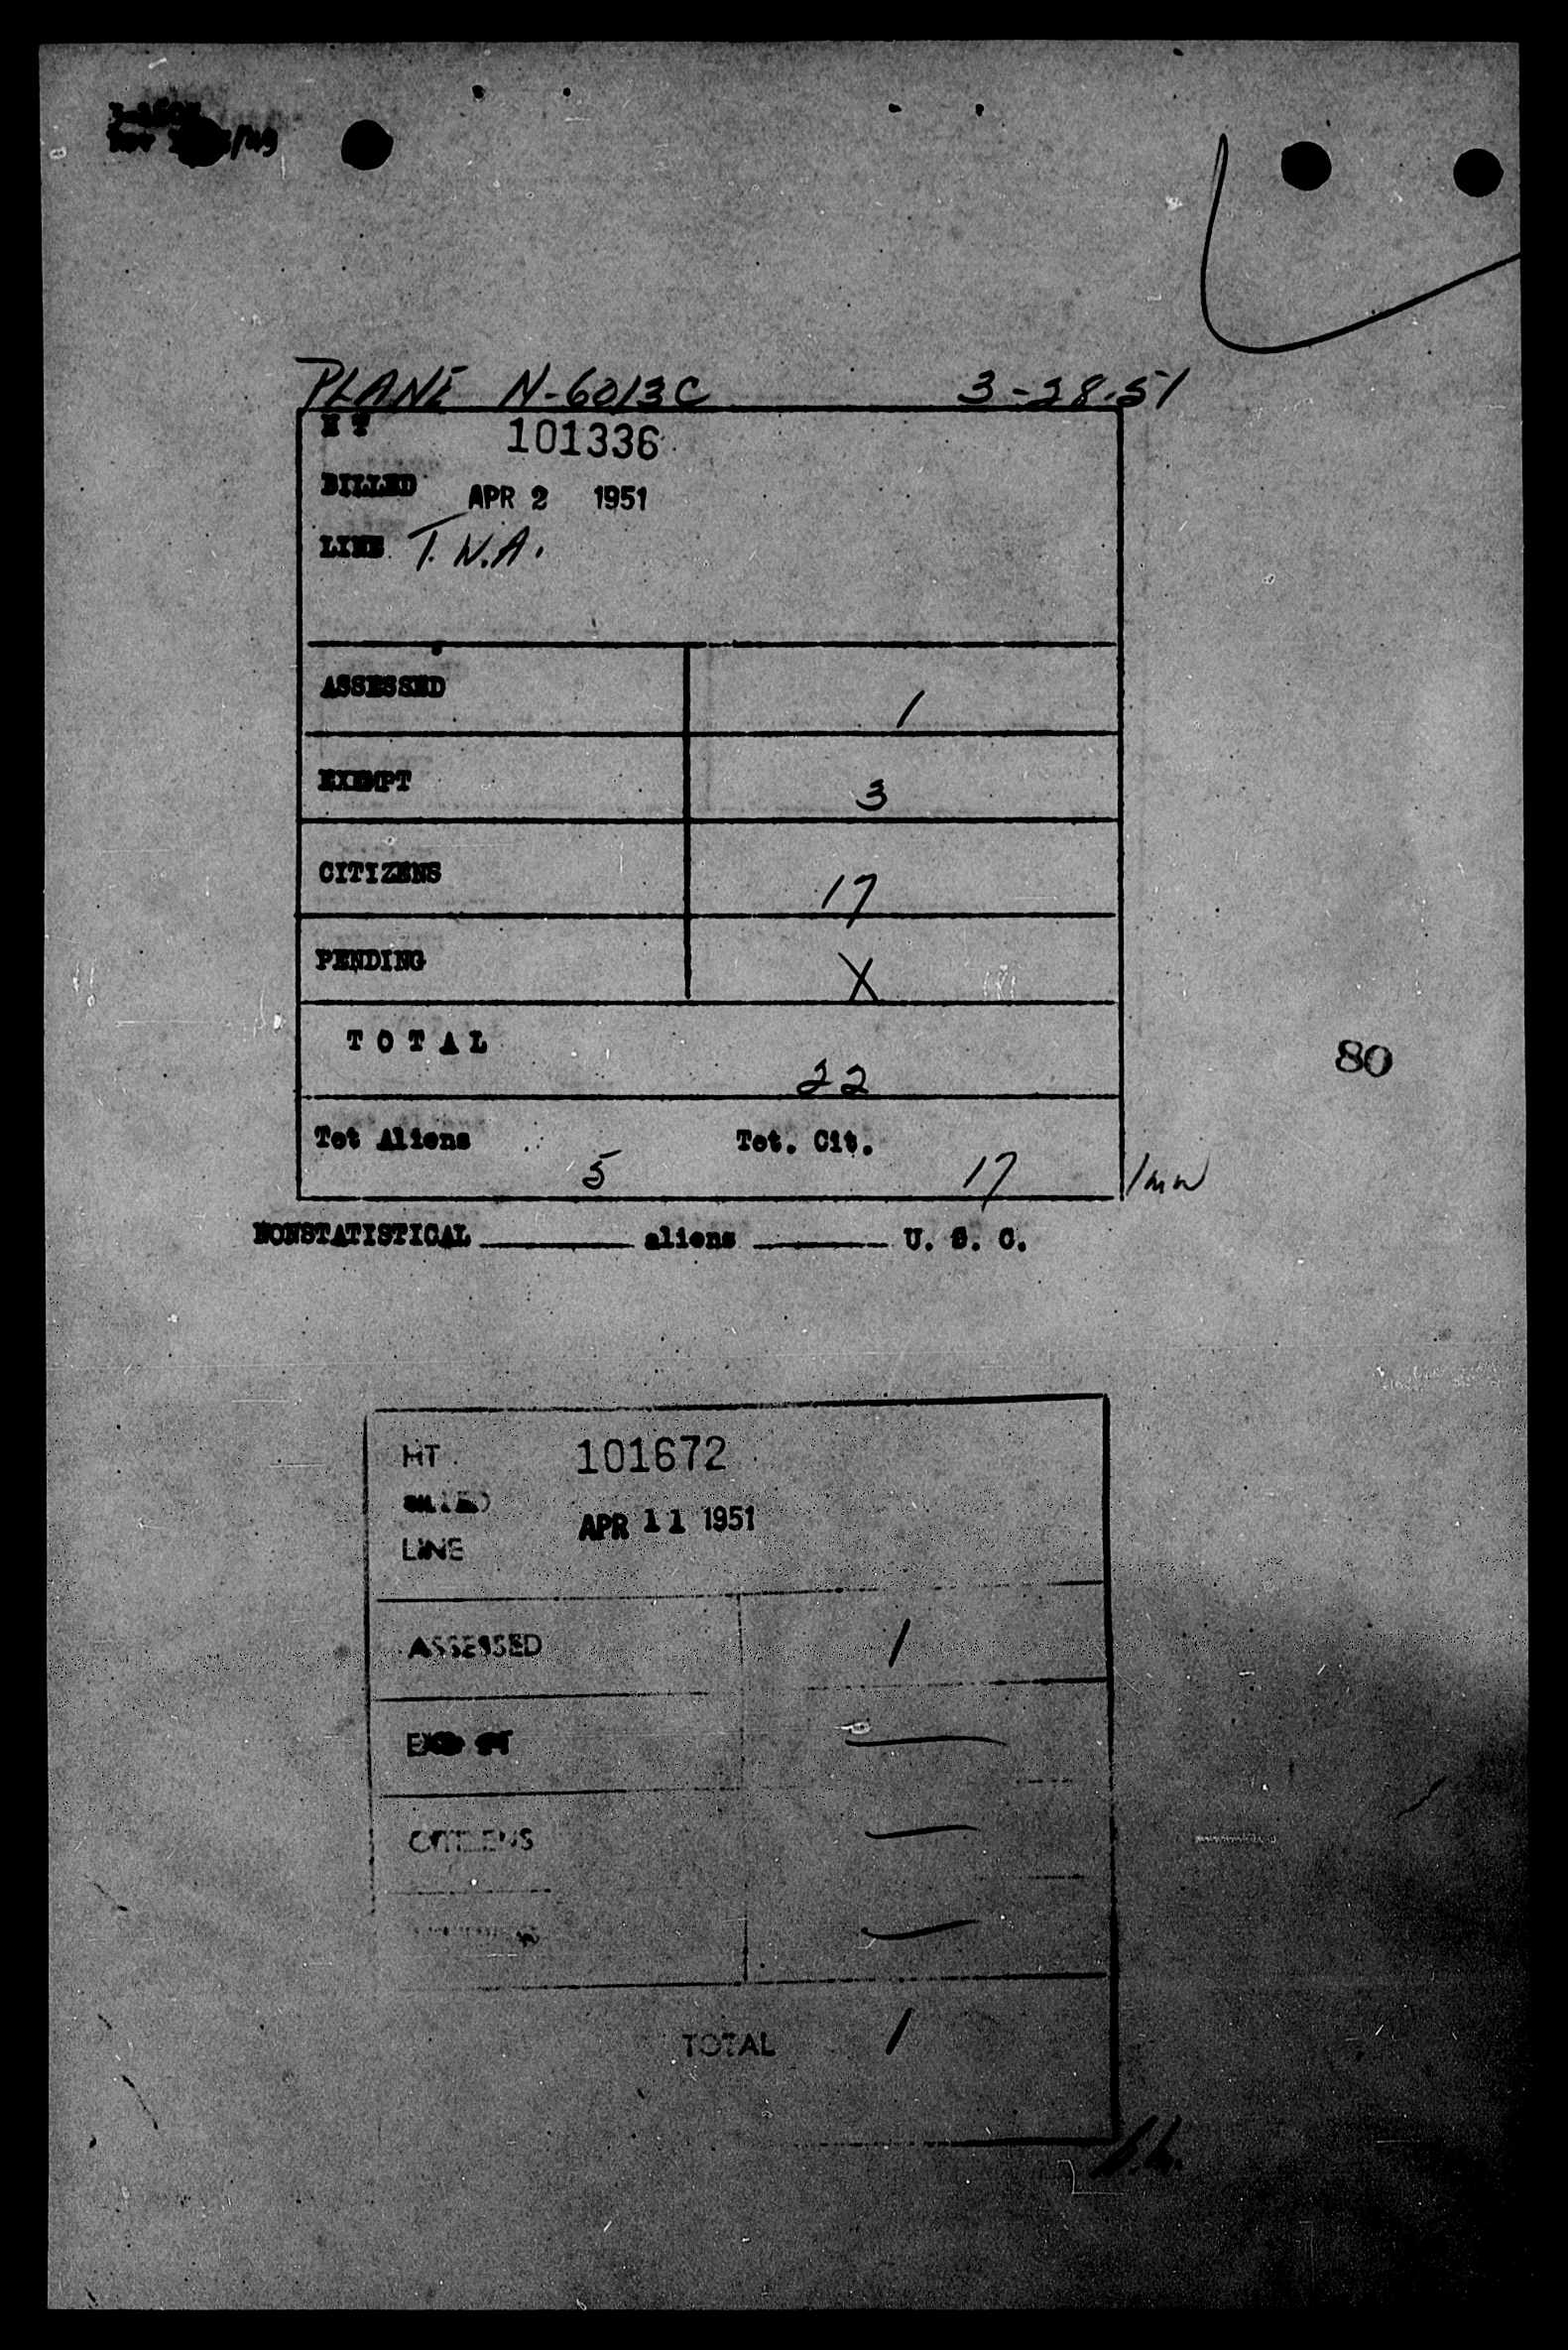 /49
PLANE N-6013C 3-28-51
H T 101336
BILLED APR 2 1951
LINE T.N.A.
ASSESSED 1
EXEMPT 3
CITIZENS 17
PENDING X
T O T A L 22
80
Tot Aliens 5 Tot. Cit. 17
NONSTATISTICAL ________ aliens ________ U. S. C.
HT 101672
BILLED
APR 11 1951
LINE
ASSESSED 1
EXEMPT —
CITIZENS —
—
TOTAL 1